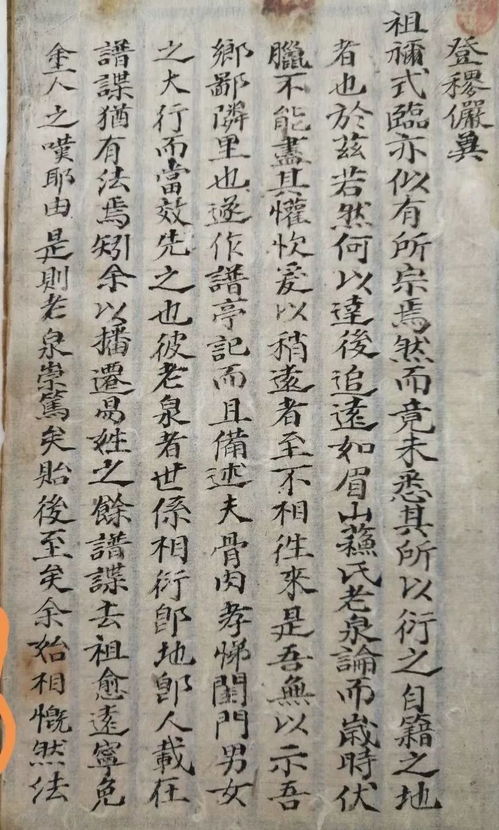 登穆儼㒷
祖禰式臨亦似有所宗焉然而竟未悉其所以衍之自籍之地
者也於兹若然何以達後追遠如眉山蘓氏老泉論而嵗時伏
臘不能盡其懽忻爰以稍遠者至不相徃來是吾無以示吾
鄉鄙隣里也遂作譜亭記而且備述夫骨肉孝悌閨門男女
之大行而當效先之也彼老泉者世係相衍卽地卽人載在
譜諜猶有法焉矧余以播遷昜姓之餘譜諜去祖愈遠寧免
塗人之嘆耶由是則老泉崇篤矣貽後至矣余始相慨然法